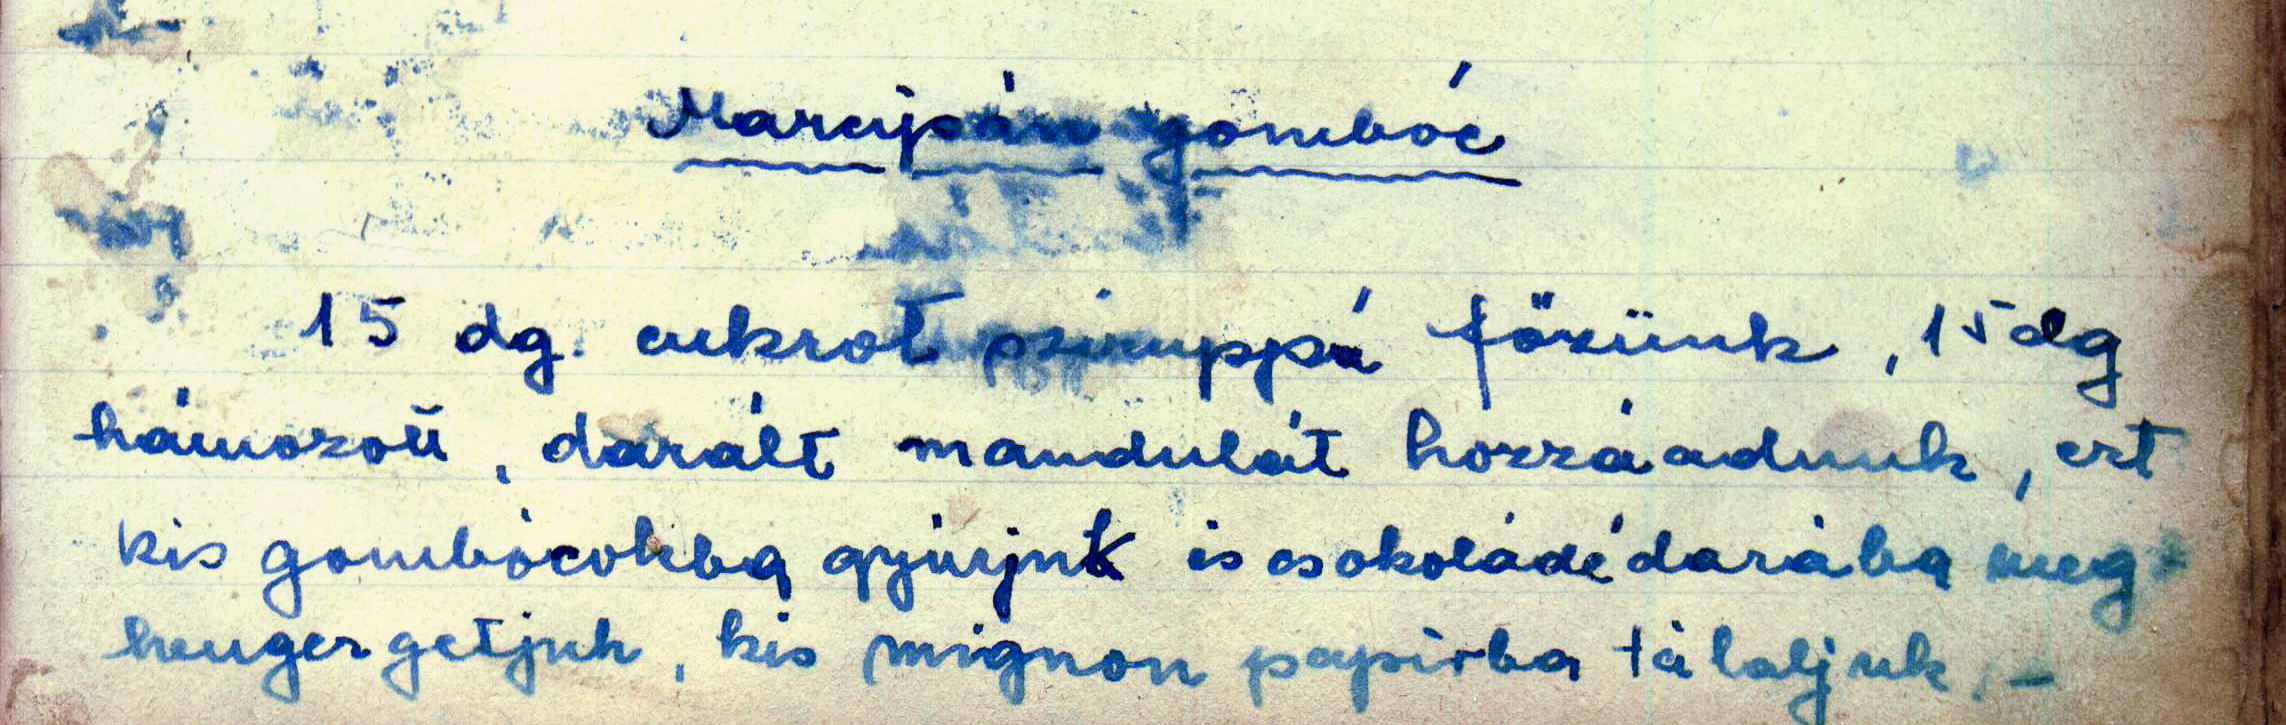 Marcipán gombóc
15 dg. cukrot sziruppá főzünk, 15 dg
hámozott, darált mandulát hozzáadunk, ezt
kis gombócokba gyúrjuk és csokoládé darába meg-
hengergetjuk, kis mignon papírba tálaljuk. -